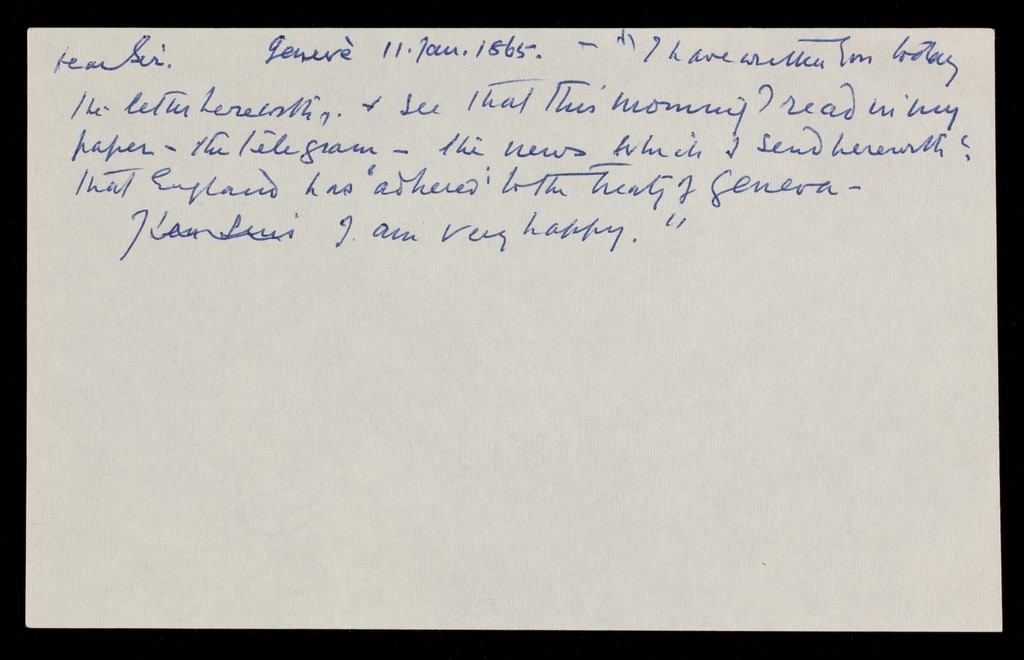 Dear Sir. Genevè 11. Jan. 1865. - "I have written you today
the letter herewith. & see that this morning I read in my
paper - the telegram - the news which I send herewith:
that England has 'adhered' to the Treaty of Geneva -
I am very happy."